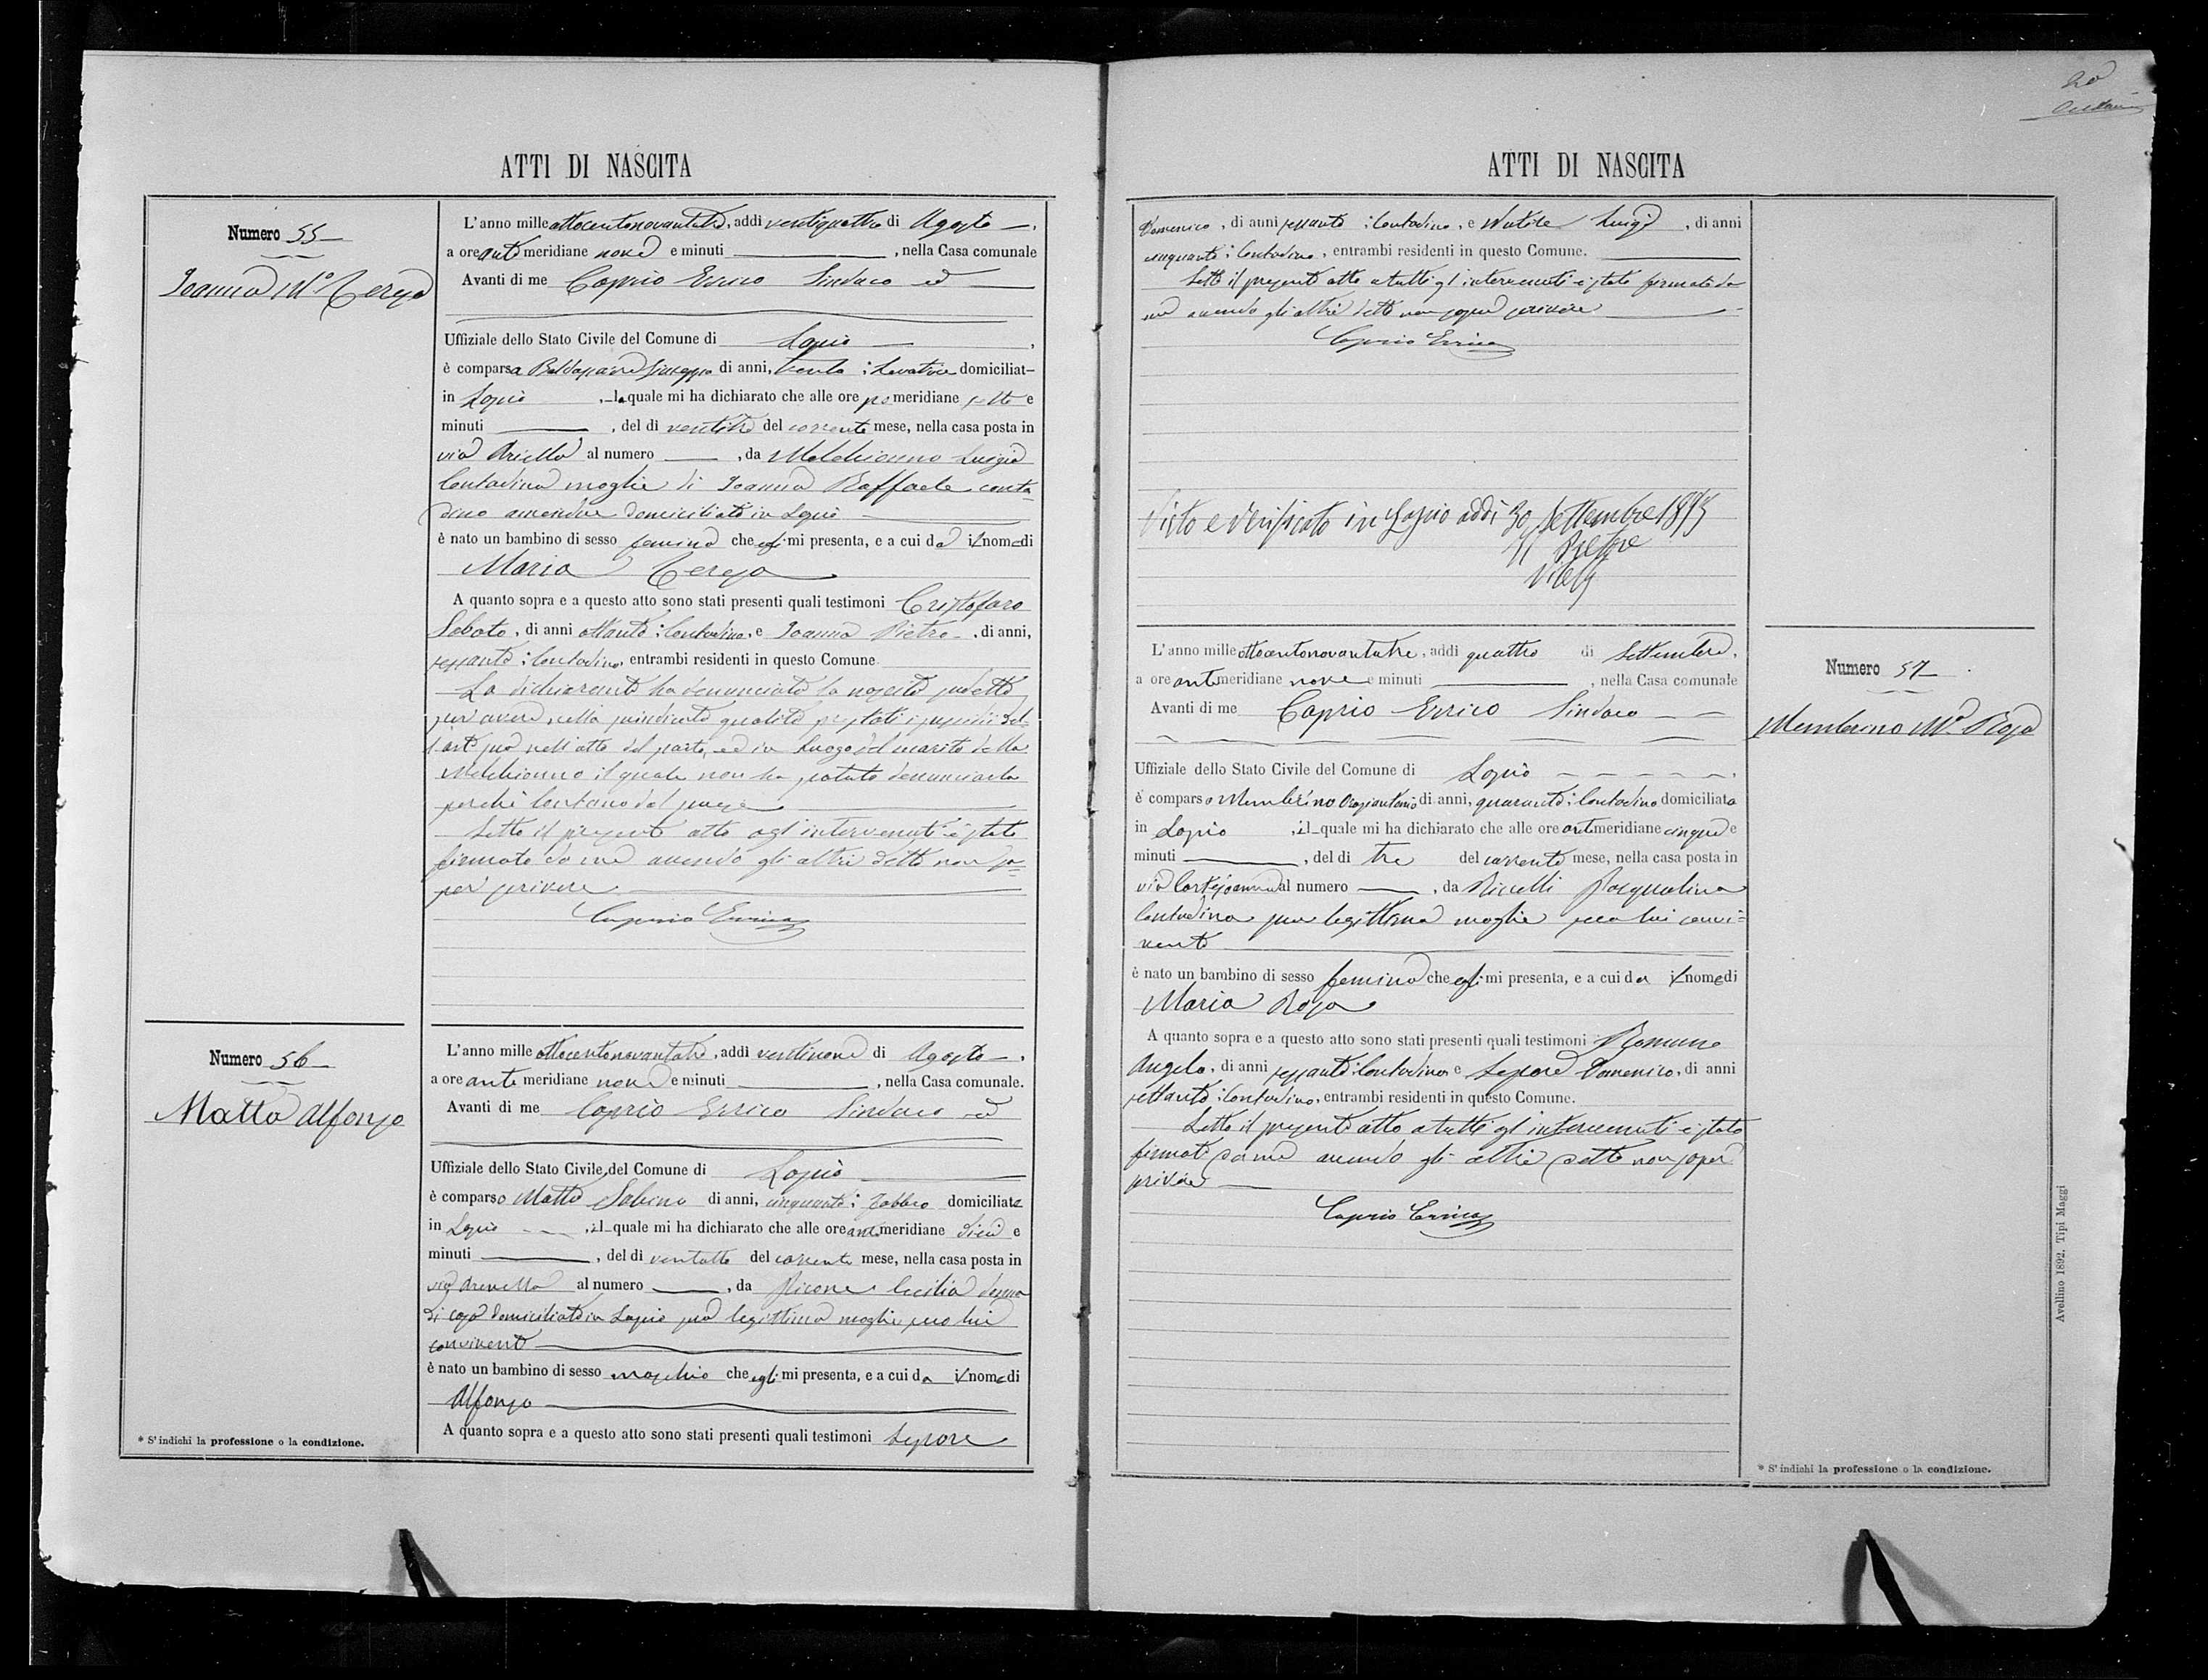 ATTI DI NASCITA
Numero 55
Ioanna Mª Teresa
L'anno mille ottocentonovantatre, addì ventiquattro di Agosto
a ore anti meridiane nove e minuti , nella Casa comunale
Avanti di me Caprio Errico Sindaco ed
Uffiziale dello Stato Civile del Comune di Lapio
è comparsa Baldassarre Giuseppa di anni, trenta ; Levatrice domiciliat-
in Lapio , la quale mi ha dichiarato che alle ore po meridiane sette e
minuti , del dì ventitre del corrente mese, nella casa posta in
via Ariella al numero , da Melchionno Luigia
Contadina moglie di Ioanna Raffaele conta-
dino amendue domiciliati in Lapio
è nato un bambino di sesso femina che mi presenta, e a cui da il nome di
Maria Teresa
A quanto sopra e a questo atto sono stati presenti quali testimoni Cristofaro
Sabato, di anni ottanta ; Contadino, e Ioanna Pietro , di anni,
sessanta ; Contadino, entrambi residenti in questo Comune.
La dichiarante ha denunciato la nascita sudetta
per avere, nella qualità prestati i sussidii del-
l'arte sua nell'atto del parto, ed in luogo del marito della
Melchionno il quale non ha potuto denunciarla
perchè lontano dal paese
Letto il presente atto agl'intervenuti è stato
firmato da me avendo gli altri detto non sa-
per scrivere
Caprio Errico
Numero 56
Matto Alfonso
L'anno mille ottocentonovantatre, addì ventinove di Agosto
a ore anti meridiane nove e minuti , nella Casa comunale.
Avanti di me Caprio Errico Sindaco ed
Uffiziale dello Stato Civile del Comune di Lapio
è comparso Matto Sabino di anni, cinquanta ; Fabbro domiciliato
in Lapio , il quale mi ha dichiarato che alle ore anti meridiane dieci e
minuti , del dì ventotto del corrente mese, nella casa posta in
via al numero , da Picone Cecilia donna
di casa domiciliata in Lapio sua legittima moglie seco lui
convivente
è nato un bambino di sesso maschio che egli mi presenta, e a cui da il nome di
Alfonso
A quanto sopra e a questo atto sono stati presenti quali testimoni Lepore
* S'indichi la professione o la condizione.
ATTI DI NASCITA
Domenico, di anni sessanta ; Contadino, e Luigi , di anni
cinquanta ; Contadino, entrambi residenti in questo Comune.
Letto il presente atto a tutti gl'intervenuti è stato firmato da
me avendo gli altri detto non saper scrivere
Caprio Errico
Visto e verificato in Lapio addì 30 Settembre 1893
Il Pretore
Numero 57
Memberino Mª Rosa
L'anno mille ottocentonovantatre, addì quattro di Settembre,
a ore anti meridiane nove e minuti , nella Casa comunale
Avanti di me Caprio Errico Sindaco
Uffiziale dello Stato Civile del Comune di Lapio
è comparso Memberino Oraziantonio di anni, quaranta ; Contadino domiciliato
in Lapio , il quale mi ha dichiarato che alle ore anti meridiane cinque e
minuti , del dì tre del corrente mese, nella casa posta in
via al numero , da Riccelli Pasqualina
Contadina sua legittima moglie seco lui convi-
vente
è nato un bambino di sesso femina che egli mi presenta, e a cui da il nome di
Maria Rosa
A quanto sopra e a questo atto sono stati presenti quali testimoni Romano
Angelo, di anni sessanta ; Contadino e Lepore Domenico, di anni
settanta ; Contadino, entrambi residenti in questo Comune.
Letto il presente atto a tutti gl'intervenuti è stato
firmato da me avendo gli altri detto non saper
scrivere
Caprio Errico
* S'indichi la professione o la condizione.
Avellino 1892. Tipi Maggi